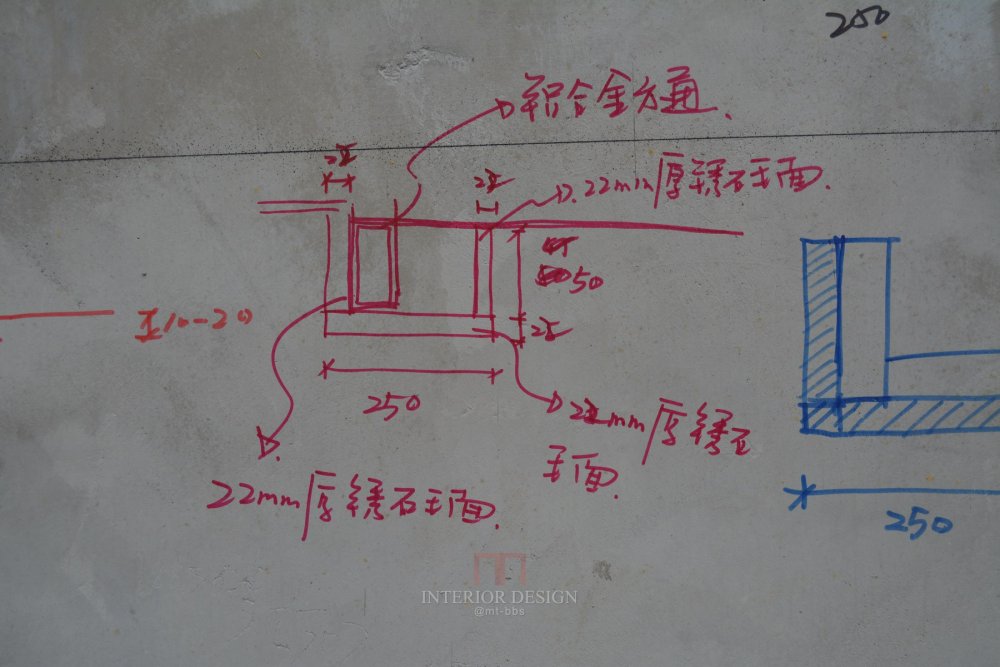 250
铝合金方通.
22
22
22mm厚锈石毛面.
50
10-20
22
250
22mm厚锈石
毛面.
22mm厚锈石毛面.
250
INTERIOR DESIGN
@mt-bbs